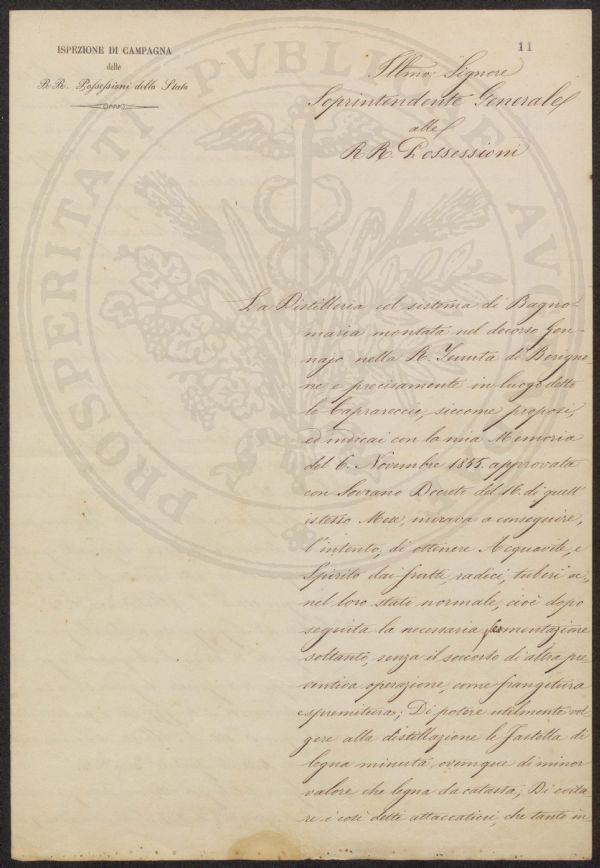 ISPEZIONE DI CAMPAGNA
delle
RR. Possessioni dello Stato
11
Illmo. Signore
Soprintendente Generale
alle
RR. Possessioni
La Distilleria col sistema di Bagno-
maria montata nel decorso Gen-
najo nella R. Tenuta di Berigno-
ne e precisamente in luogo detto
le Caprareccie, siccome proposi,
ed indicai con la mia Memoria
del 6. Novembre 1855. approvata
con Sovrano Decreto del 16. di quell'
istesso Mese, mirava a conseguire,
l'intento, di ottenere Acquavite, e
Spirito dai frutti, radici, tuberi &.
nel loro stato normale, cioè dopo
seguita la necessaria fermentazione
soltanto, senza il soccorso di altra pre
ventiva operazione, come frangitura
e spremitura; Di potere utilmente vol
gere alla distillazione le Fastella di
legna minuta, ovunque di minor
valore che legna da catasta; Di evita
re i così detti attaccaticci, che tanto in
PROSPERITATI PVBLICAE AVG